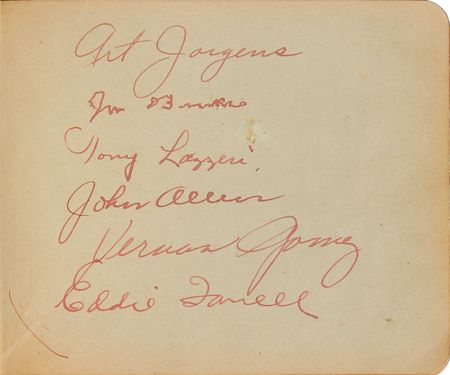 Art Jorgens
Tony Lazzeri
John Allen
Vernon Gomez
Eddie Farrell